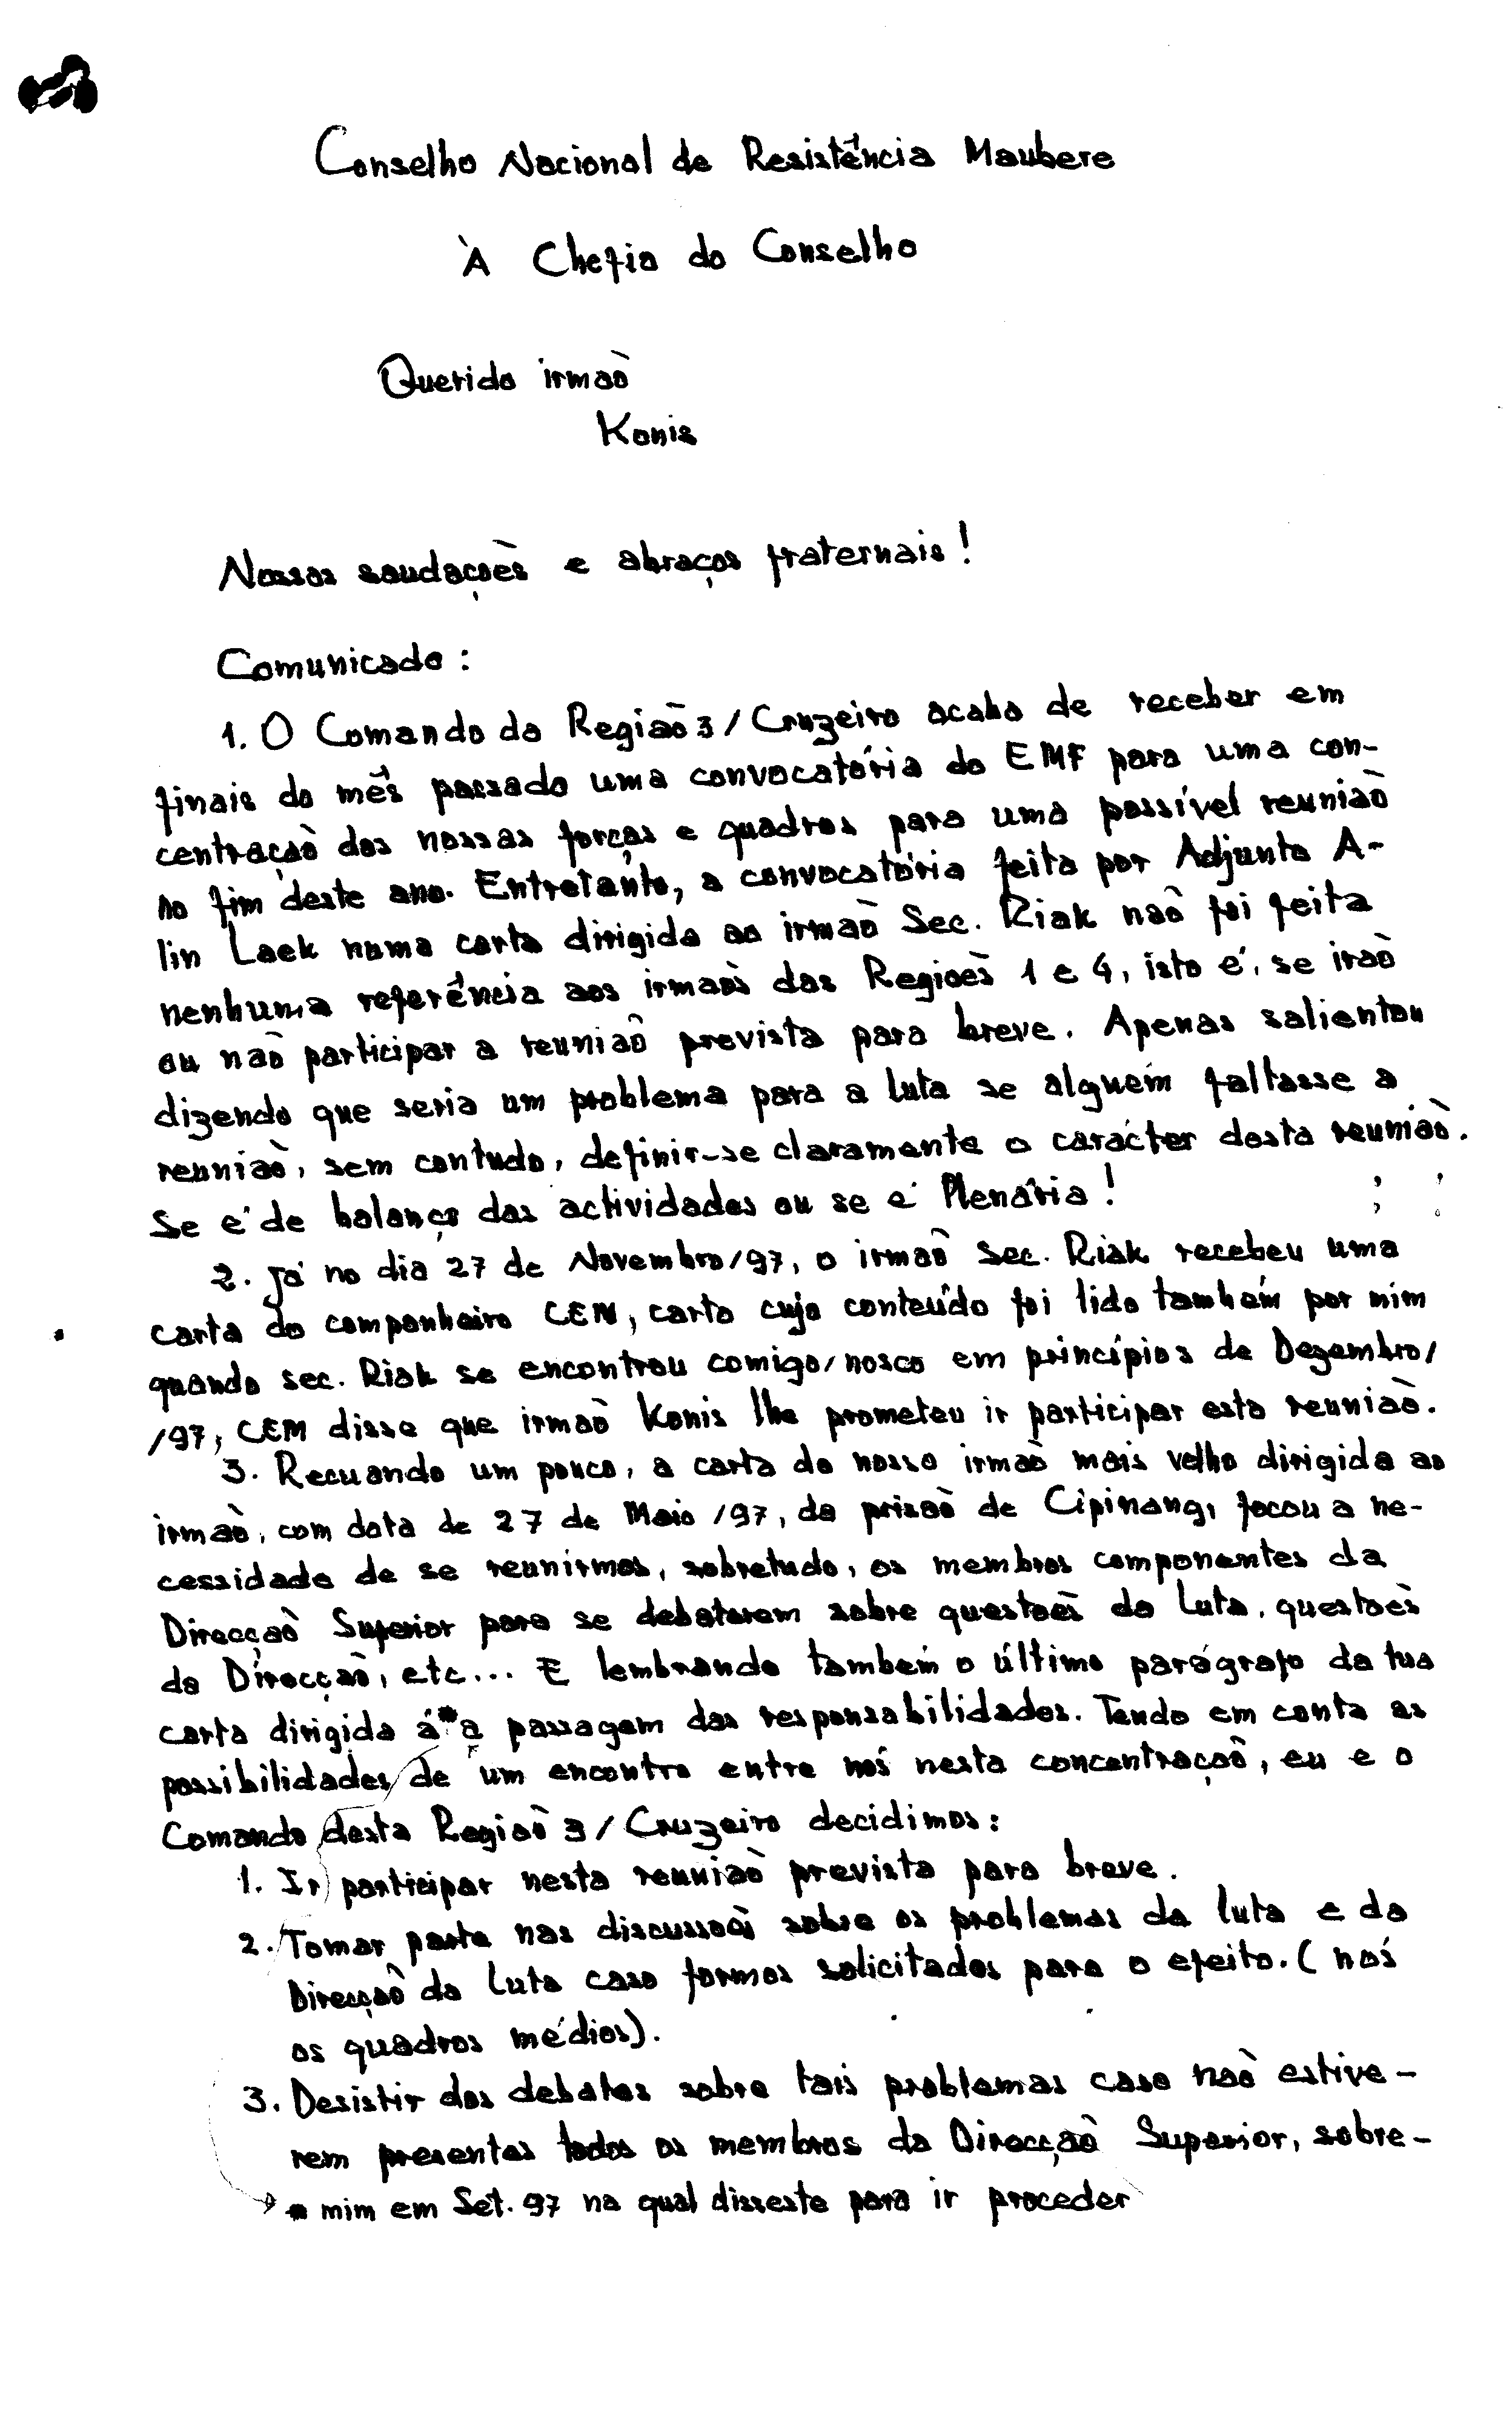 Conselho Nacional de Resistência Maubere
À Chefia do Conselho
Querido irmão
Konis
Nossas saudações e abraços fraternais!
Comunicado:
1. O Comando da Região 3/Cruzeiro acaba de receber em
finais do mês passado uma convocatória do EMF para uma con-
centração das nossas forças e quadros para uma possível reunião
no fim deste ano. Entretanto, a convocatória feita por Adjunto A-
lin Laek numa carta dirigida ao irmão Sec. Riak não foi feita
nenhuma referência aos irmãos das Regiões 1 e 4, isto é, se irão
ou não participar a reunião prevista para breve. Apenas salientou
dizendo que seria um problema para a luta se alguém faltasse a
reunião, sem contudo, definir-se claramente o carácter desta reunião.
Se é de balanço das actividades ou se é Plenária!
2. Já no dia 27 de Novembro/97, o irmão Sec. Riak recebeu uma
carta do companheiro CEM, carta cujo conteúdo foi lido também por mim
quando sec. Riak se encontrou comigo/nosco em princípios de Dezembro/
/97, CEM disse que irmão Konis lhe prometeu ir participar esta reunião.
3. Recuando um pouco, a carta do nosso irmão mais velho dirigida ao
irmão, com data de 27 de Maio/97, da prisão de Cipinang, focou a ne-
cessidade de se reunirmos, sobretudo, os membros componentes da
Direcção Superior para se debaterem sobre questões da Luta, questões
da Direcção, etc... E lembrando também o último parágrafo da tua
carta dirigida á a passagem das responsabilidades. Tendo em conta as
possibilidades de um encontro entre nós nesta concentração, eu e o
Comando desta Região 3/Cruzeiro decidimos:
1. Ir participar nesta reunião prevista para breve.
2. Tomar parte nas discussões sobre os problemas da luta e da
Direcção da Luta caso formos solicitados para o efeito. (nós
os quadros médios).
3. Desistir dos debates sobre tais problemas caso não estive-
rem presentes todos os membros da Direcção Superior, sobre-
mim em Set. 97 na qual disseste para ir proceder